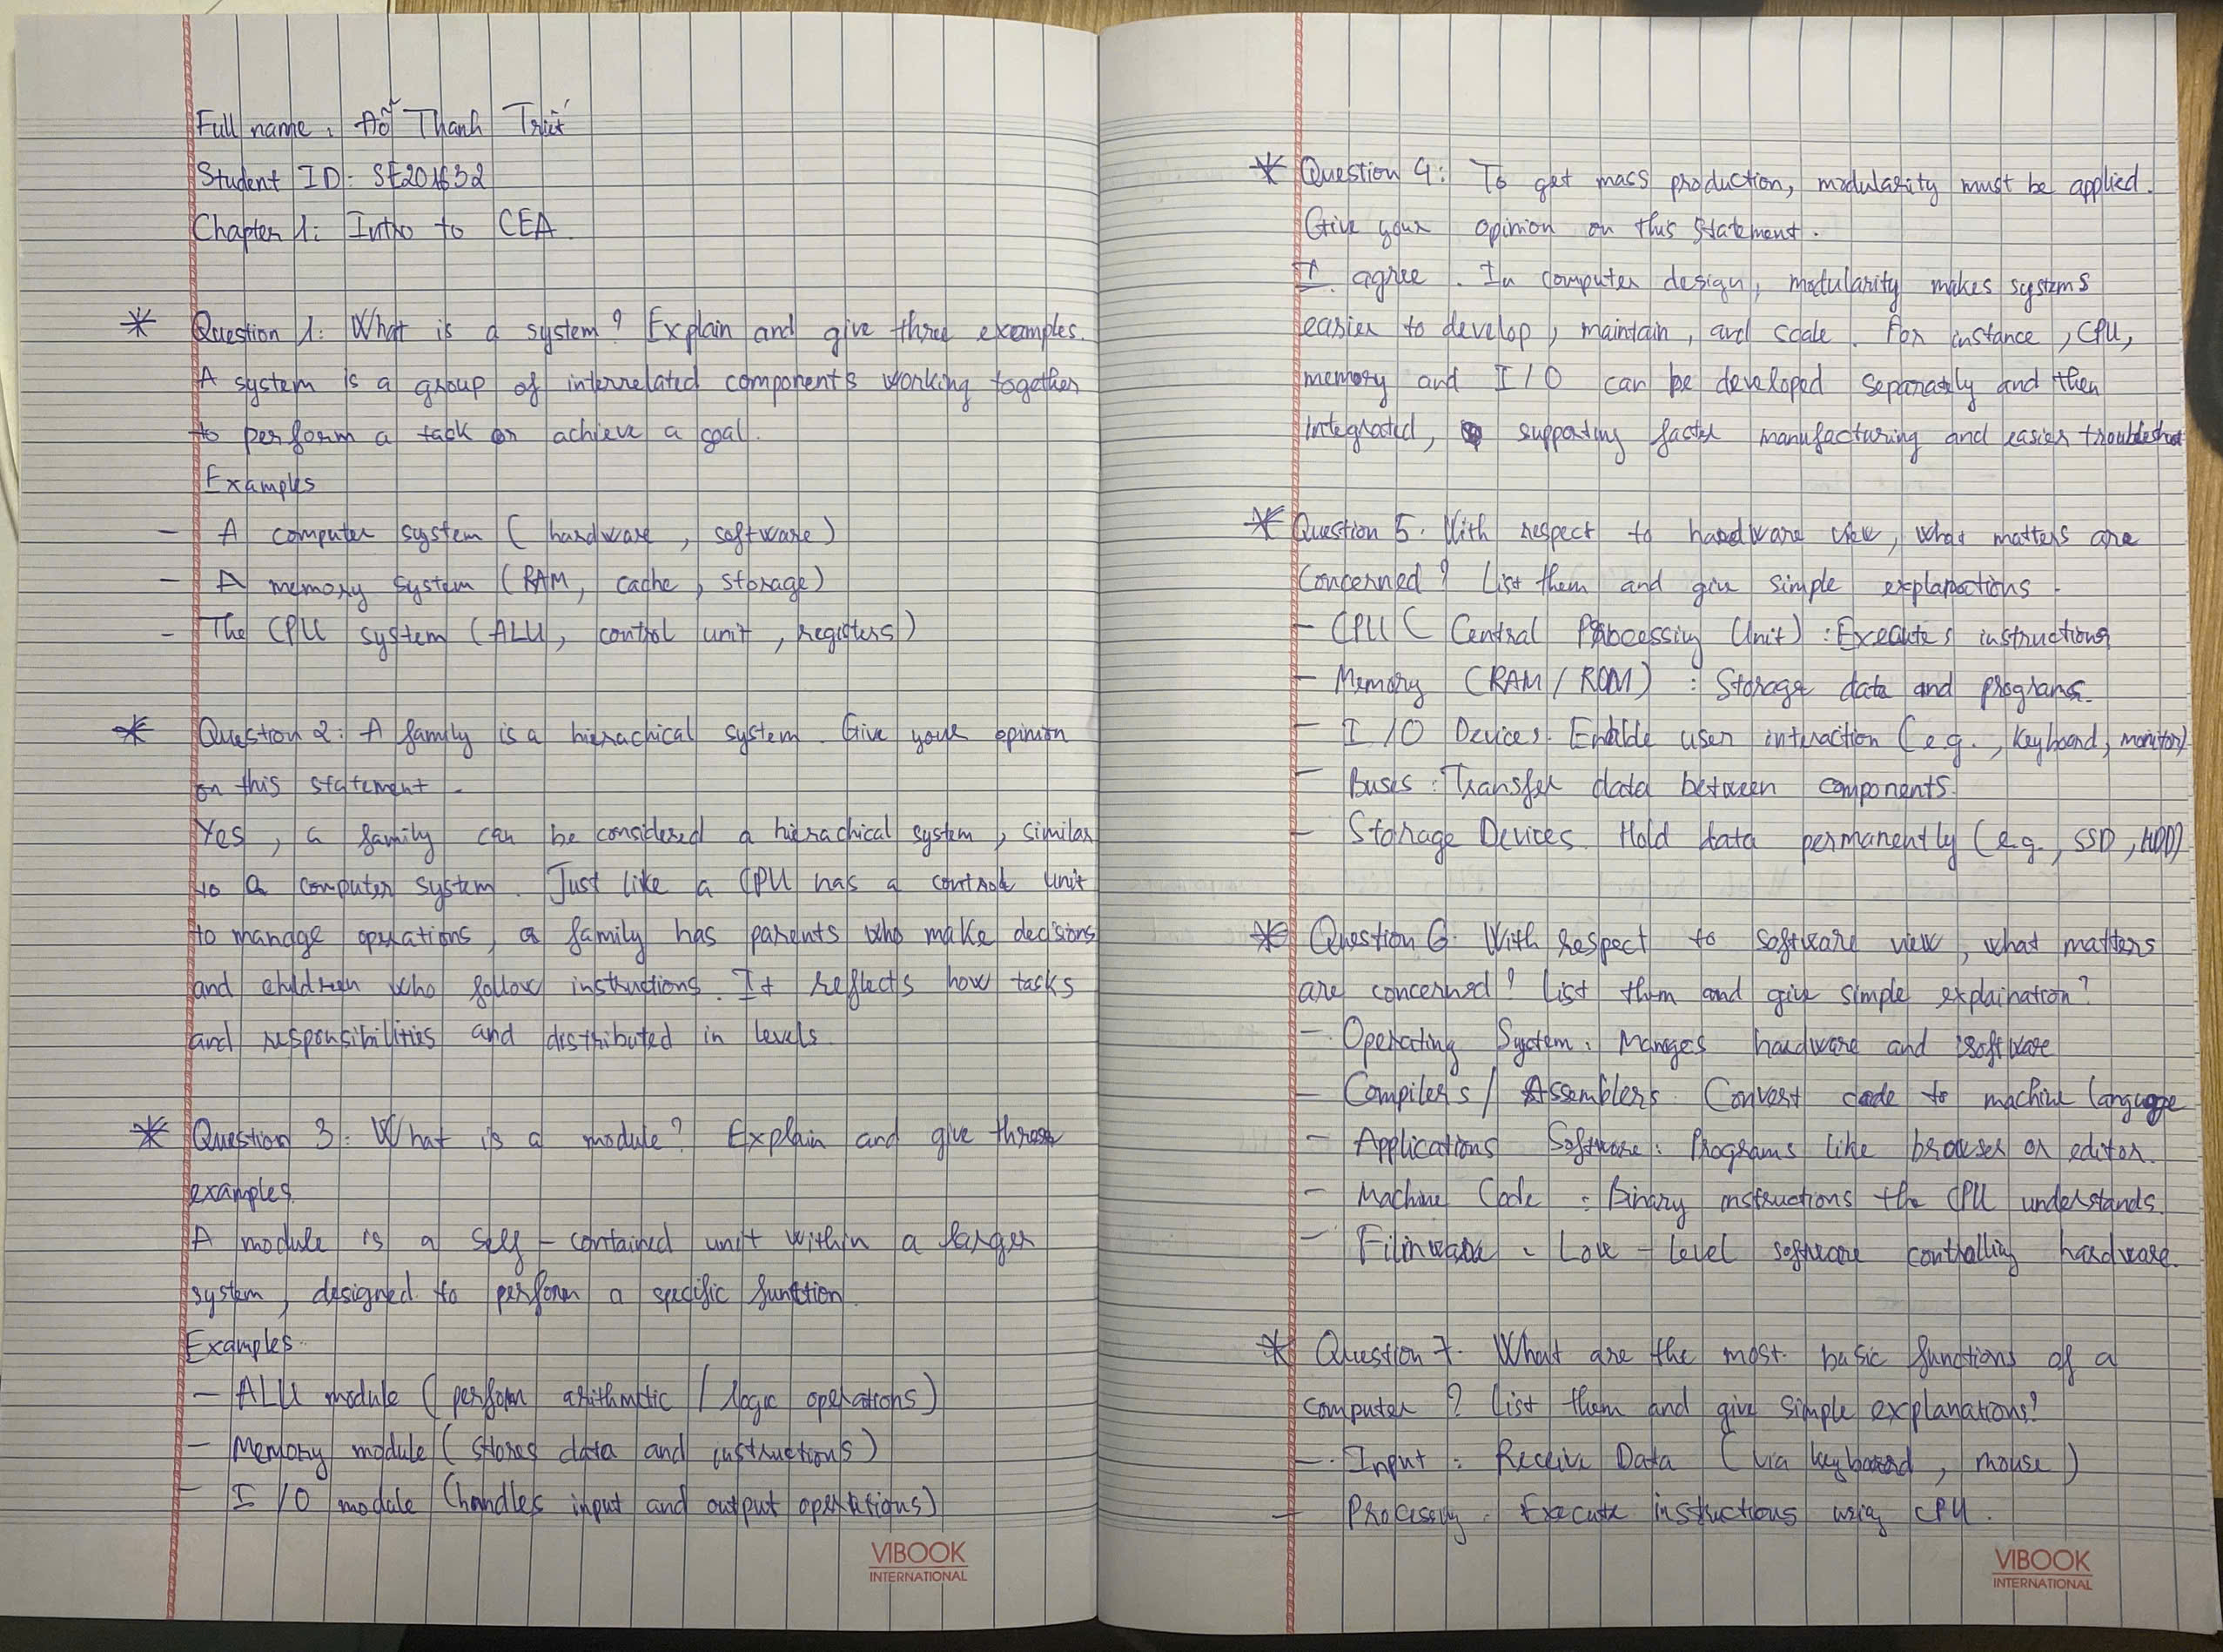 Full name : Đỗ Thanh Triết
Student ID: SE201632
Chapter 1: Intro to CEA
* Question 1: What is a system? Explain and give three examples.
A system is a group of interrelated components working together
to perform a task or achieve a goal.
Examples
- A computer system (hardware, software)
- A memory system (RAM, cache, storage)
- The CPU system (ALU, control unit, registers)
* Question 2: A family is a hierachical system. Give your opinion
on this statement.
Yes, a family can be considered a hierachical system, similar
to a computer system. Just like a CPU has a control unit
to manage operations, a family has parents who make decisions
and children who follow instructions. It reflects how tasks
and responsibilities and distributed in levels.
* Question 3: What is a module? Explain and give three
examples.
A module is a self-contained unit within a larger
system, designed to perform a specific function.
Examples.
- ALU module (perform arithmetic / logic operations)
- Memory module (stores data and instructions)
- I/O module (handles input and output operations)
VIBOOK
INTERNATIONAL
* Question 4: To get mass production, modularity must be applied.
Give your opinion on this statement.
I agree. In computer design, modularity makes systems
easier to develop, maintain, and scale. For instance, CPU,
memory and I/O can be developed separately and then
integrated, supporting faster manufacturing and easier troubleshoot
* Question 5. With respect to hardware view, what matters are
concerned? List them and give simple explanations.
- CPU (Central Processing Unit): Executes instructions
- Memory (RAM/ROM): Storage data and programs.
- I/O Devices. Enable user interaction (e.g., keyboard, monitor)
- Buses: Transfer data between components
- Storage Devices. Hold data permanently (e.g., SSD, HDD)
* Question 6. With respect to software view, what matters
are concerned? List them and give simple explaination?
- Operating System: Manges hardware and software
- Compilers / Assemblers. Convert code to machine language
- Applications Software: Programs like browser or editor.
- Machine Code: Binary instructions the CPU understands.
- Low-level software controlling hardware.
* Question 7. What are the most basic functions of a
computer? List them and give simple explanations?
- Input: Receive Data (via keyboard, mouse)
- Processing. Execute instructions using CPU.
VIBOOK
INTERNATIONAL